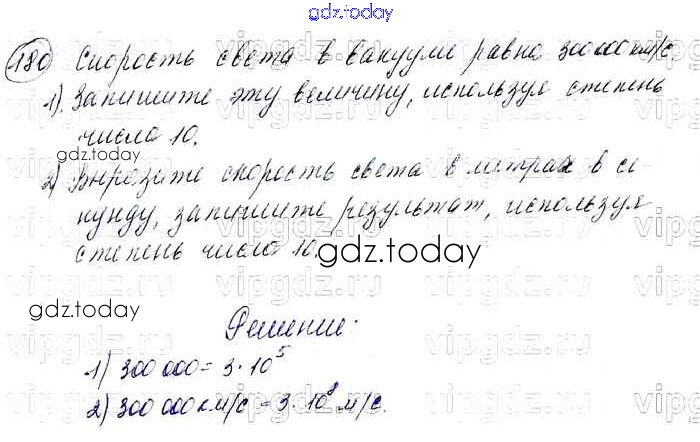 gdz.today
180 Скорость света в вакууме равна 300 000 км/с.
1). Запишите эту величину, используя степень
числа 10.
gdz.today
2) Вырозите скорость света в метрах в се-
кунду, запишите результат, используя
степень числа 10.
gdz.today
gdz.today
Решение:
1) 300 000 = 3 · 10⁵
2) 300 000 км/с = 3 · 10⁸ м/с.
vipgdz.ru vipgdz.ru vipgdz.ru